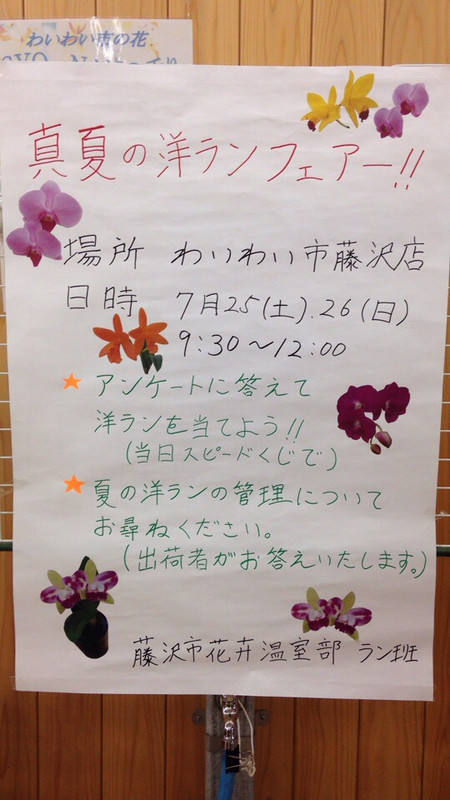 わいわい市の花
真夏の洋ランフェアー!!
場所 わいわい市藤沢店
日時 7月25(土).26(日)
9:30～12:00
★ アンケートに答えて
洋ランを当てよう!!
(当日スピードくじで)
★ 夏の洋ランの管理について
お尋ねください。
(出荷者がお答えいたします。)
藤沢市花卉温室部 ラン班